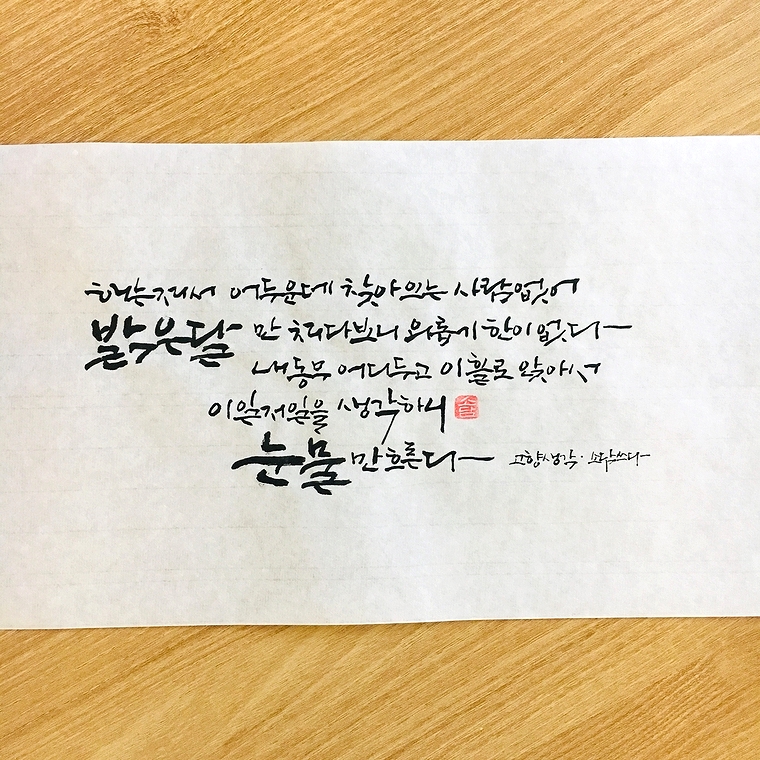 해는져서 어두운데 찾아오는 사람없어
밝은달 만 쳐다보니 외롭기 한이없다
내동무 어디두고 이홀로 앉아서
이일저일을 생각하니
눈물만흐른다 고향생각·소담쓰다